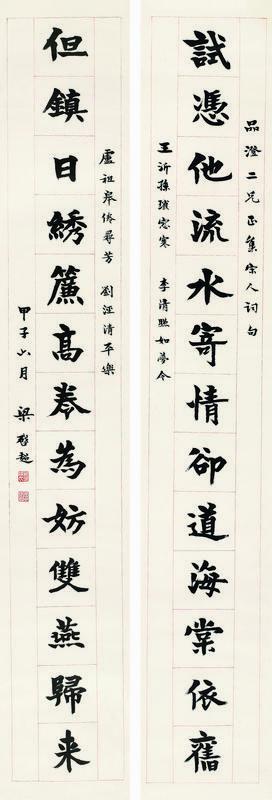 品澄二兄正集宋人詞句
試憑他流水寄情卻道海棠依舊
王沂孫璅窓寒 李清照如夢令
盧祖皋倦尋芳 劉涇清平樂
但鎮日綉簾髙卷為妨雙燕歸来
甲子六月 梁啓超